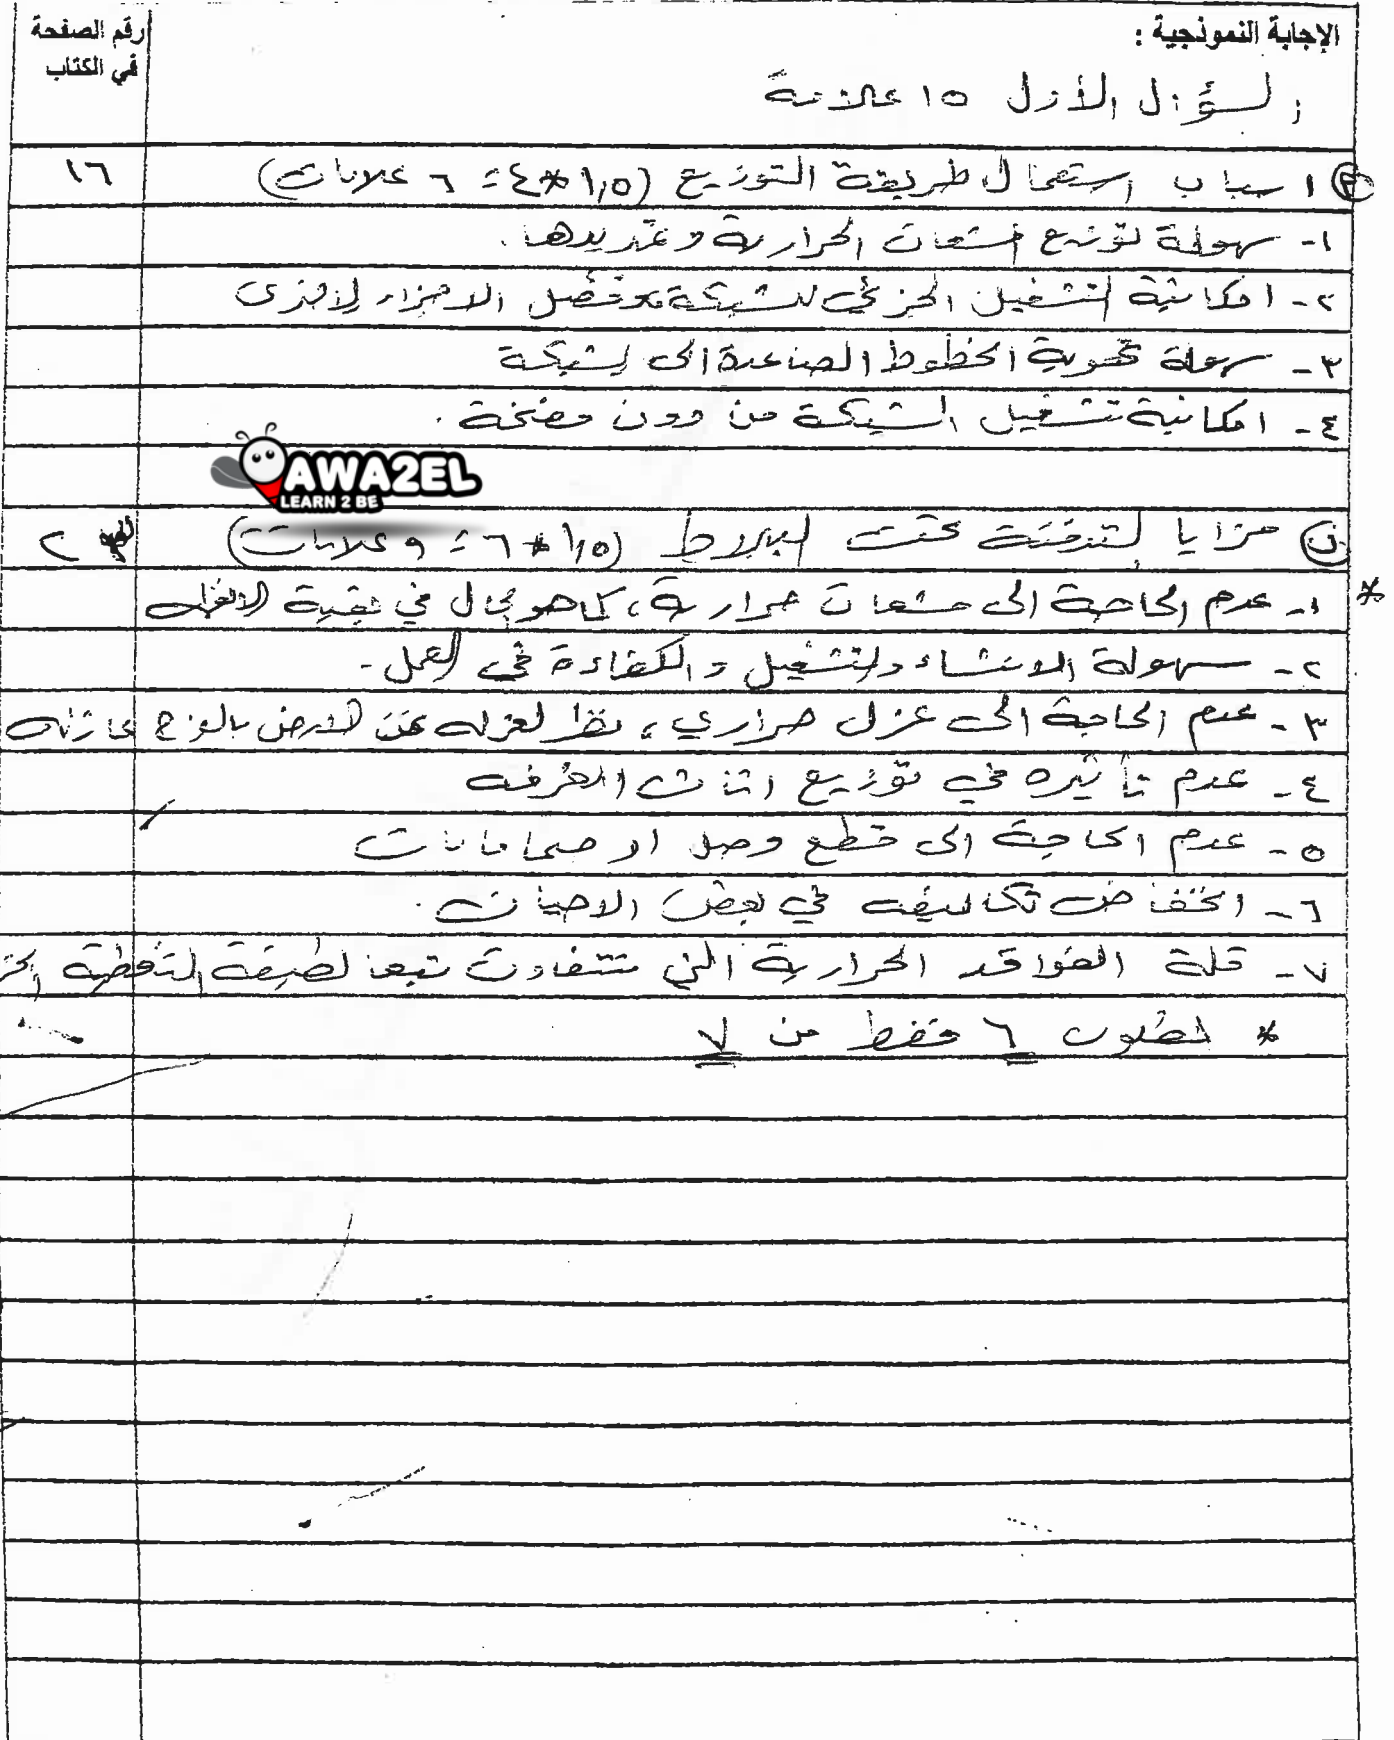 الإجابة النموذجية :
رقم الصفحة
في الكتاب
السؤال الأول ١٥ علامة
اسباب استعمال طريقة التوزيع (١,٥*٤ = ٦ علامات)
١٦
١- سهولة توزيع المشعات الحرارية وتمديدها.
٢- امكانية التشغيل الجزئي للشبكة فصل الاجزاء الاخرى
٣- سهولة تهوية الخطوط الصاعدة الى الشبكة
٤- امكانية تشغيل الشبكة من دون مضخة .
AWA2EL
LEARN 2 BE
مزايا التدفئة تحت البلاط (١,٥*٦ = ٩ علامات)
٢
* ١- عدم الحاجة الى مشعات حرارية، كما هو الحال في بقية
٢- سهولة الانشاء والتشغيل والكفاءة في العمل.
٣- عدم الحاجة الى عزل حراري، نظرا لعزله عن الارض بالواح عازلة
٤- عدم تأثيره في توزيع اثاث الغرفه
٥- عدم الحاجة الى قطع وصل او صمامات
٦- انخفاض تكاليفه في بعض الاحيان.
٧- قلة الفواقد الحرارية التي تتفاوت تبعا لطبيعة التغطية
* المطلوب ٦ فقط من ٧